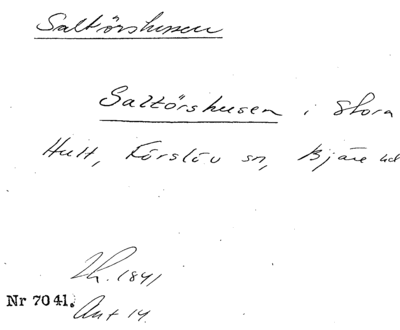 Saltörshusen
Saltörshusen i Stora
Hult, Förslöv sn, Bjäre hd
Lh. 1841
Nr 7041. Ant 14.